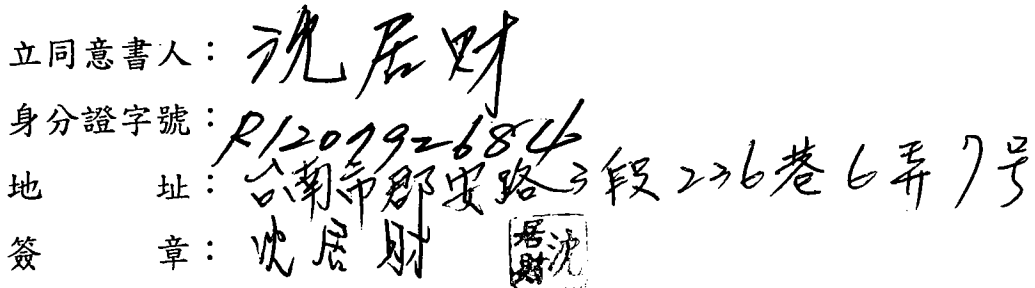 立同意書人：沈居財
身分證字號：R120792684
地址：台南市郡安路3段236巷6弄7号
簽章：沈居財 沈居財